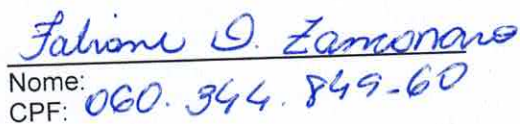 Fabiane D. Zamconaro
Nome:
CPF: 060.344.849-60